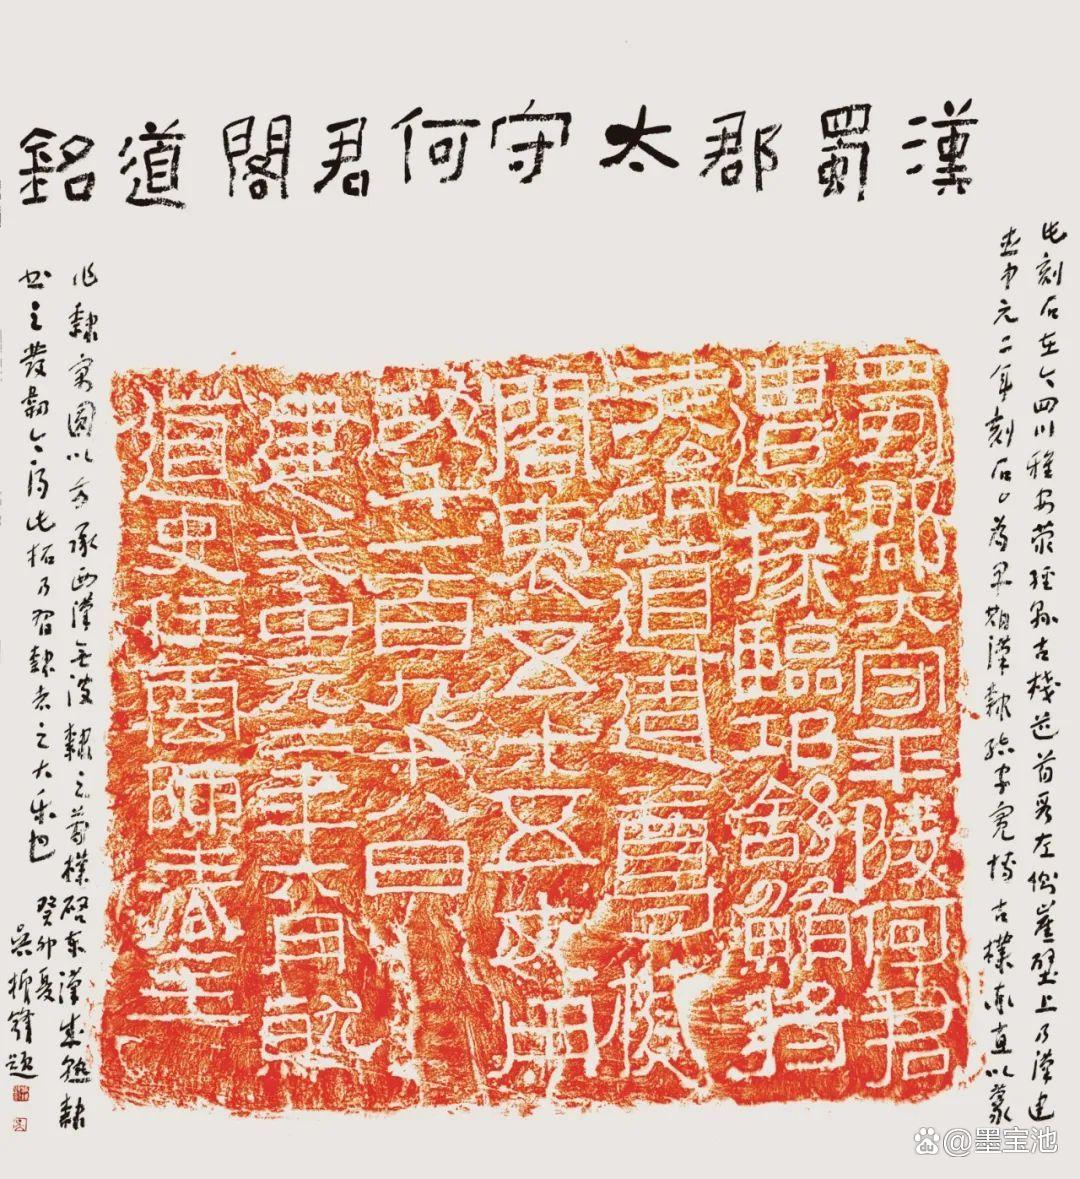 漢蜀郡太守何君閣道銘
此刻石在今四川雅安滎經縣古棧道首段左側崖壁上乃漢建
武中元二年刻石為早期漢隸結字寬博古樸率直以篆
蜀郡大守平陵何君
遣掾臨邛舒鮪將
徒治道造尊楗
閣袤五十五丈用
功千一百九十八日
建武中元二年六月就
道史任雲陳春主
作隸寓圓以方承西漢無波隸之古樸啓東漢成熟隸
書之發韌今得此拓乃習隸者之大樂也 癸卯夏
吳振鋒題
@墨宝池